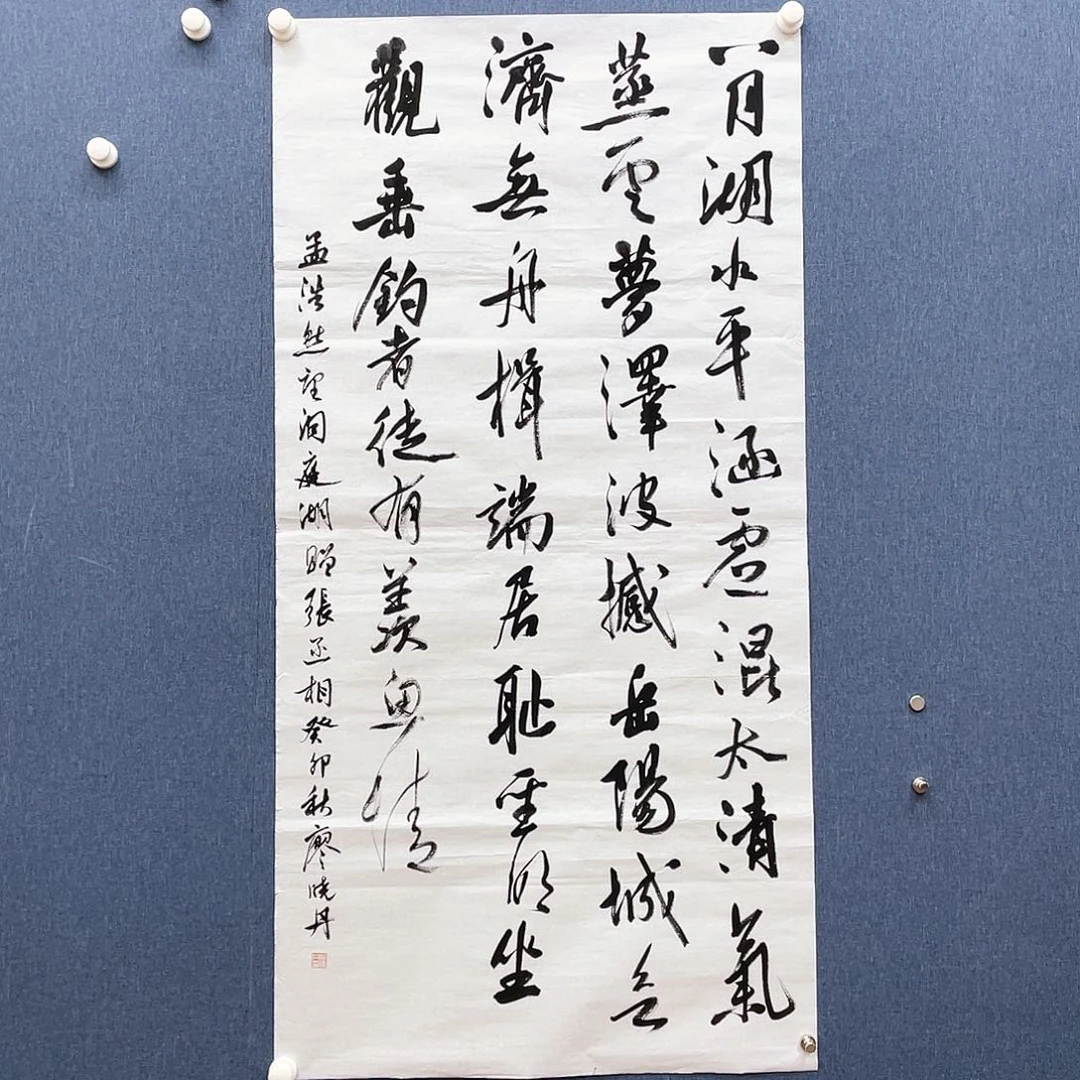 八月湖水平涵虛混太清氣
蒸雲夢澤波撼岳陽城欲
濟無舟楫端居耻聖明坐
觀垂釣者徒有羨魚情
孟浩然望洞庭湖贈張丞相癸卯秋廖曉丹